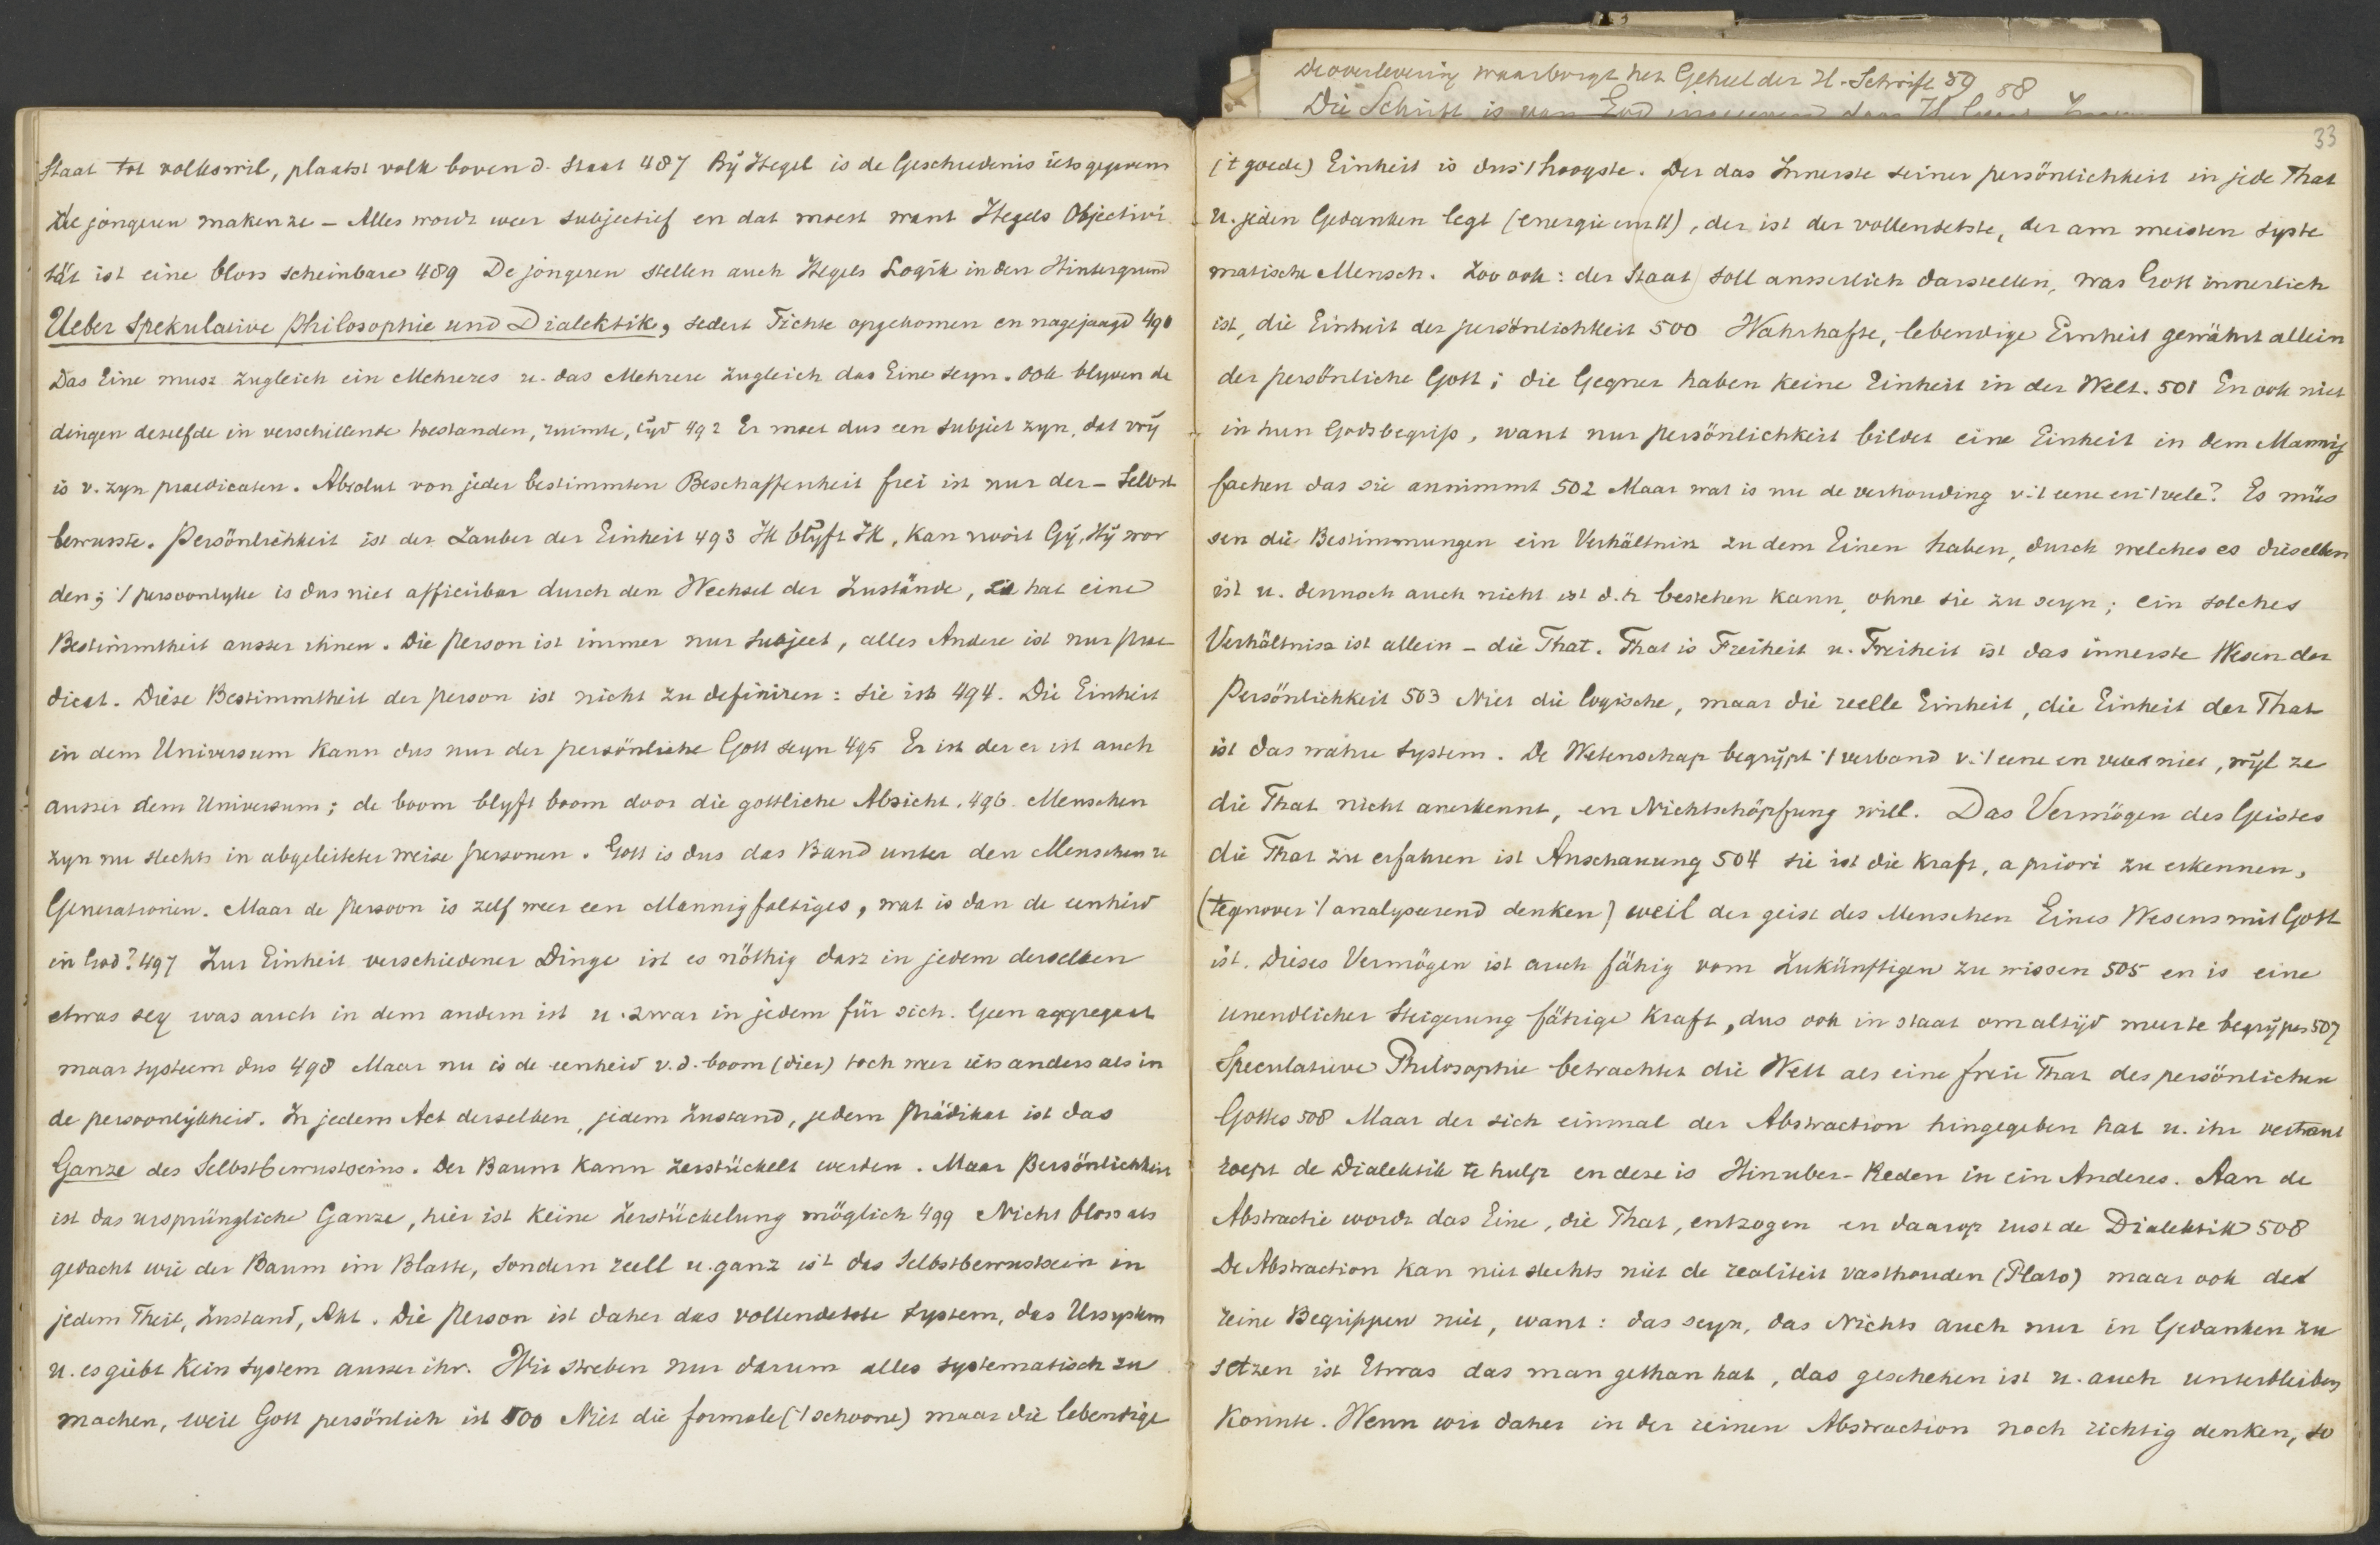 De overlevering waarborgt het Geheel der H. Schrift 59 58
Die Schrift is van God
Staat tot volkswil, plaatst volk boven d. Staat 487 Bij Hegel is de Geschiedenis iets gegevens
de jongeren maken ze – Alles wordt weer subjectief en dat moest want Hegels Objectivi
tät ist eine bloss scheinbare 489 De jongeren stellen auch Hegels Logik in den Hintergrund
Ueber Spekulative Philosophie und Dialektik, sedert Fichte opgekomen en nagejaagd 490
Das Eine musz zugleich ein Mehreres u. das Mehrere zugleich das Eine seyn. Ook blyven de
dingen deselfde in verschillende toestanden, ruimte, tijd 492 Er moet dus een subject zyn, dat vrij
is v. zyn praedicaten. Absolut von jeder bestimmten Beschaffenheit frei ist nur der – Selbst
bewusste. Persönlichkeit ist der Zauber der Einheit 493 Ik blijft Ik, kan nooit Gij, Hij wor
den; 't persoonlyke is dus niet afficirbar durch den Wechsel der Zustände, es hat eine
Bestimmtheit ausser ihnen. Die Person ist immer nur Subject, alles Andere ist nur prae-
dicat. Diese Bestimmtheit der person ist nicht zu definiren: sie ist 494. Die Einheit
in dem Universum kann dus nur der persönliche Gott seyn 495 Er ist der er ist auch
ausser dem Universum; de boom blyft boom door die gottliche Absicht. 496. Menschen
zyn nu slechts in abgeleiteter weise personen. Gott is dus das Band unter den Menschen u
Generationen. Maar de persoon is zelf weer een Mannigfaltiges, wat is dan de eenheid
in God? 497 Zur Einheit verschiedener Dinge ist es nöthig dasz in jedem derselben
etwas sey was auch in dem andern ist u. zwar in jedem für sich. Geen aggregaat
maar systeem dus 498 Maar nu is de eenheid v. d. boom (dier) toch weer iets anders als in
de persoonlijkheid. In jedem Act derselben, jedem Zustand, jedem Prädikat ist das
Ganze des Selbstbewustseins. Der Baum kann zerstückelt werden. Maar Persönlichkeit
ist das ursprüngliche Ganze, hier ist keine Zerstückelung möglich 499 Nicht bloss als
gedacht wie der Baum im Blatte, sondern reell u. ganz ist das Selbstbewustsein in
jedem Theil, Zustand, Akt. Die Person ist daher das vollendetste System, das Ursystem
u. es giebt kein System ausser ihr. Wir streben nur darum alles systematisch zu
machen, weil Gott persönlich ist 500 Niet die formale ('t schoone) maar die lebendige
33
('t goede) Einheit is dus 't hoogste. Der das Innerste seiner persönlichkeit in jede That
u. jeden Gedanken legt (energie), der ist der vollendetste, der am meisten syste
matische Mensch. Zoo ook: der Staat soll ausserlich darstellen, was Gott innerlich
ist, die Einheit der persönlichkeit 500 Wahrhafte, lebendige Einheit gewährt allein
der persönliche Gott; die Gegner haben keine Einheit in der Welt. 501 En ook niet
in hun Godsbegrip, want nur persönlichkeit bildet eine Einheit in dem Mannig
fachen das sie annimmt 502 Maar wat is nu de verhouding v. 't eene en 't vele? Es müs
sen die Bestimmungen ein Verhältnisz zu dem Einen haben, durch welches es dieselben
ist u. dennoch auch nicht ist d. h bestehen kann, ohne sie zu seyn; ein solches
Verhältnisz ist allein – die That. That is Freiheit u. Freiheit ist das innerste Wesen der
Persönlichkeit 503 Niet die logische, maar die reelle Einheit, die Einheit der That
ist das wahre System. De Wetenschap begrijpt 't verband v. 't eene en vele niet, wijl ze
die That nicht anerkennt, en Nichtschöpfung will. Das Vermögen des Geistes
die That zu erfahren ist Anschauung 504 sie ist die Kraft, a priori zu erkennen,
(tegenover 't analyseerend denken) weil der geist des Menschen Eines Wesens mit Gott
ist. Dieses Vermögen ist auch fähig vom Zukünftigen zu wissen 505 en is eine
unendlicher Steigerung fähige Kraft, dus ook in staat om altijd meer te begrijpen 507
Speculative Philosophie betrachtet die Welt als eine freie That des persönlichen
Gottes 508 Maar der sich einmal der Abstraction hingegeben hat u. ihr vertraut
roept de Dialektik te hulp en deze is Hinuber-Reden in ein Anderes. Aan de
Abstractie wordt das Eine, die That, entzogen en daarop rust de Dialektik 508
De Abstraction kan niet slechts niet de realiteit vasthouden (Plato) maar ook de
reine Begrippen niet, want: das seyn, das Nichts auch nur in Gedanken zu
setzen ist Etwas das man gethan hat, das geschehen ist u. auch unterbleiben
konnte. Wenn wir daher in der reinen Abstraction noch richtig denken, so